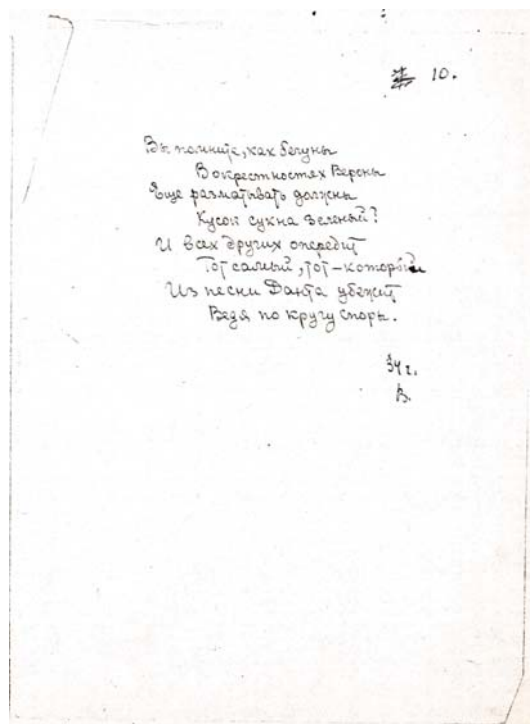 10.
Вы помните, как бегуны
В окрестностях Вероны
Еще разматывать должны
Кусок сукна зеленый?
И всех других опередит
Тот самый, тот – который
Из песни Данта убежит
Ведя по кругу споры.
34 г.
В.